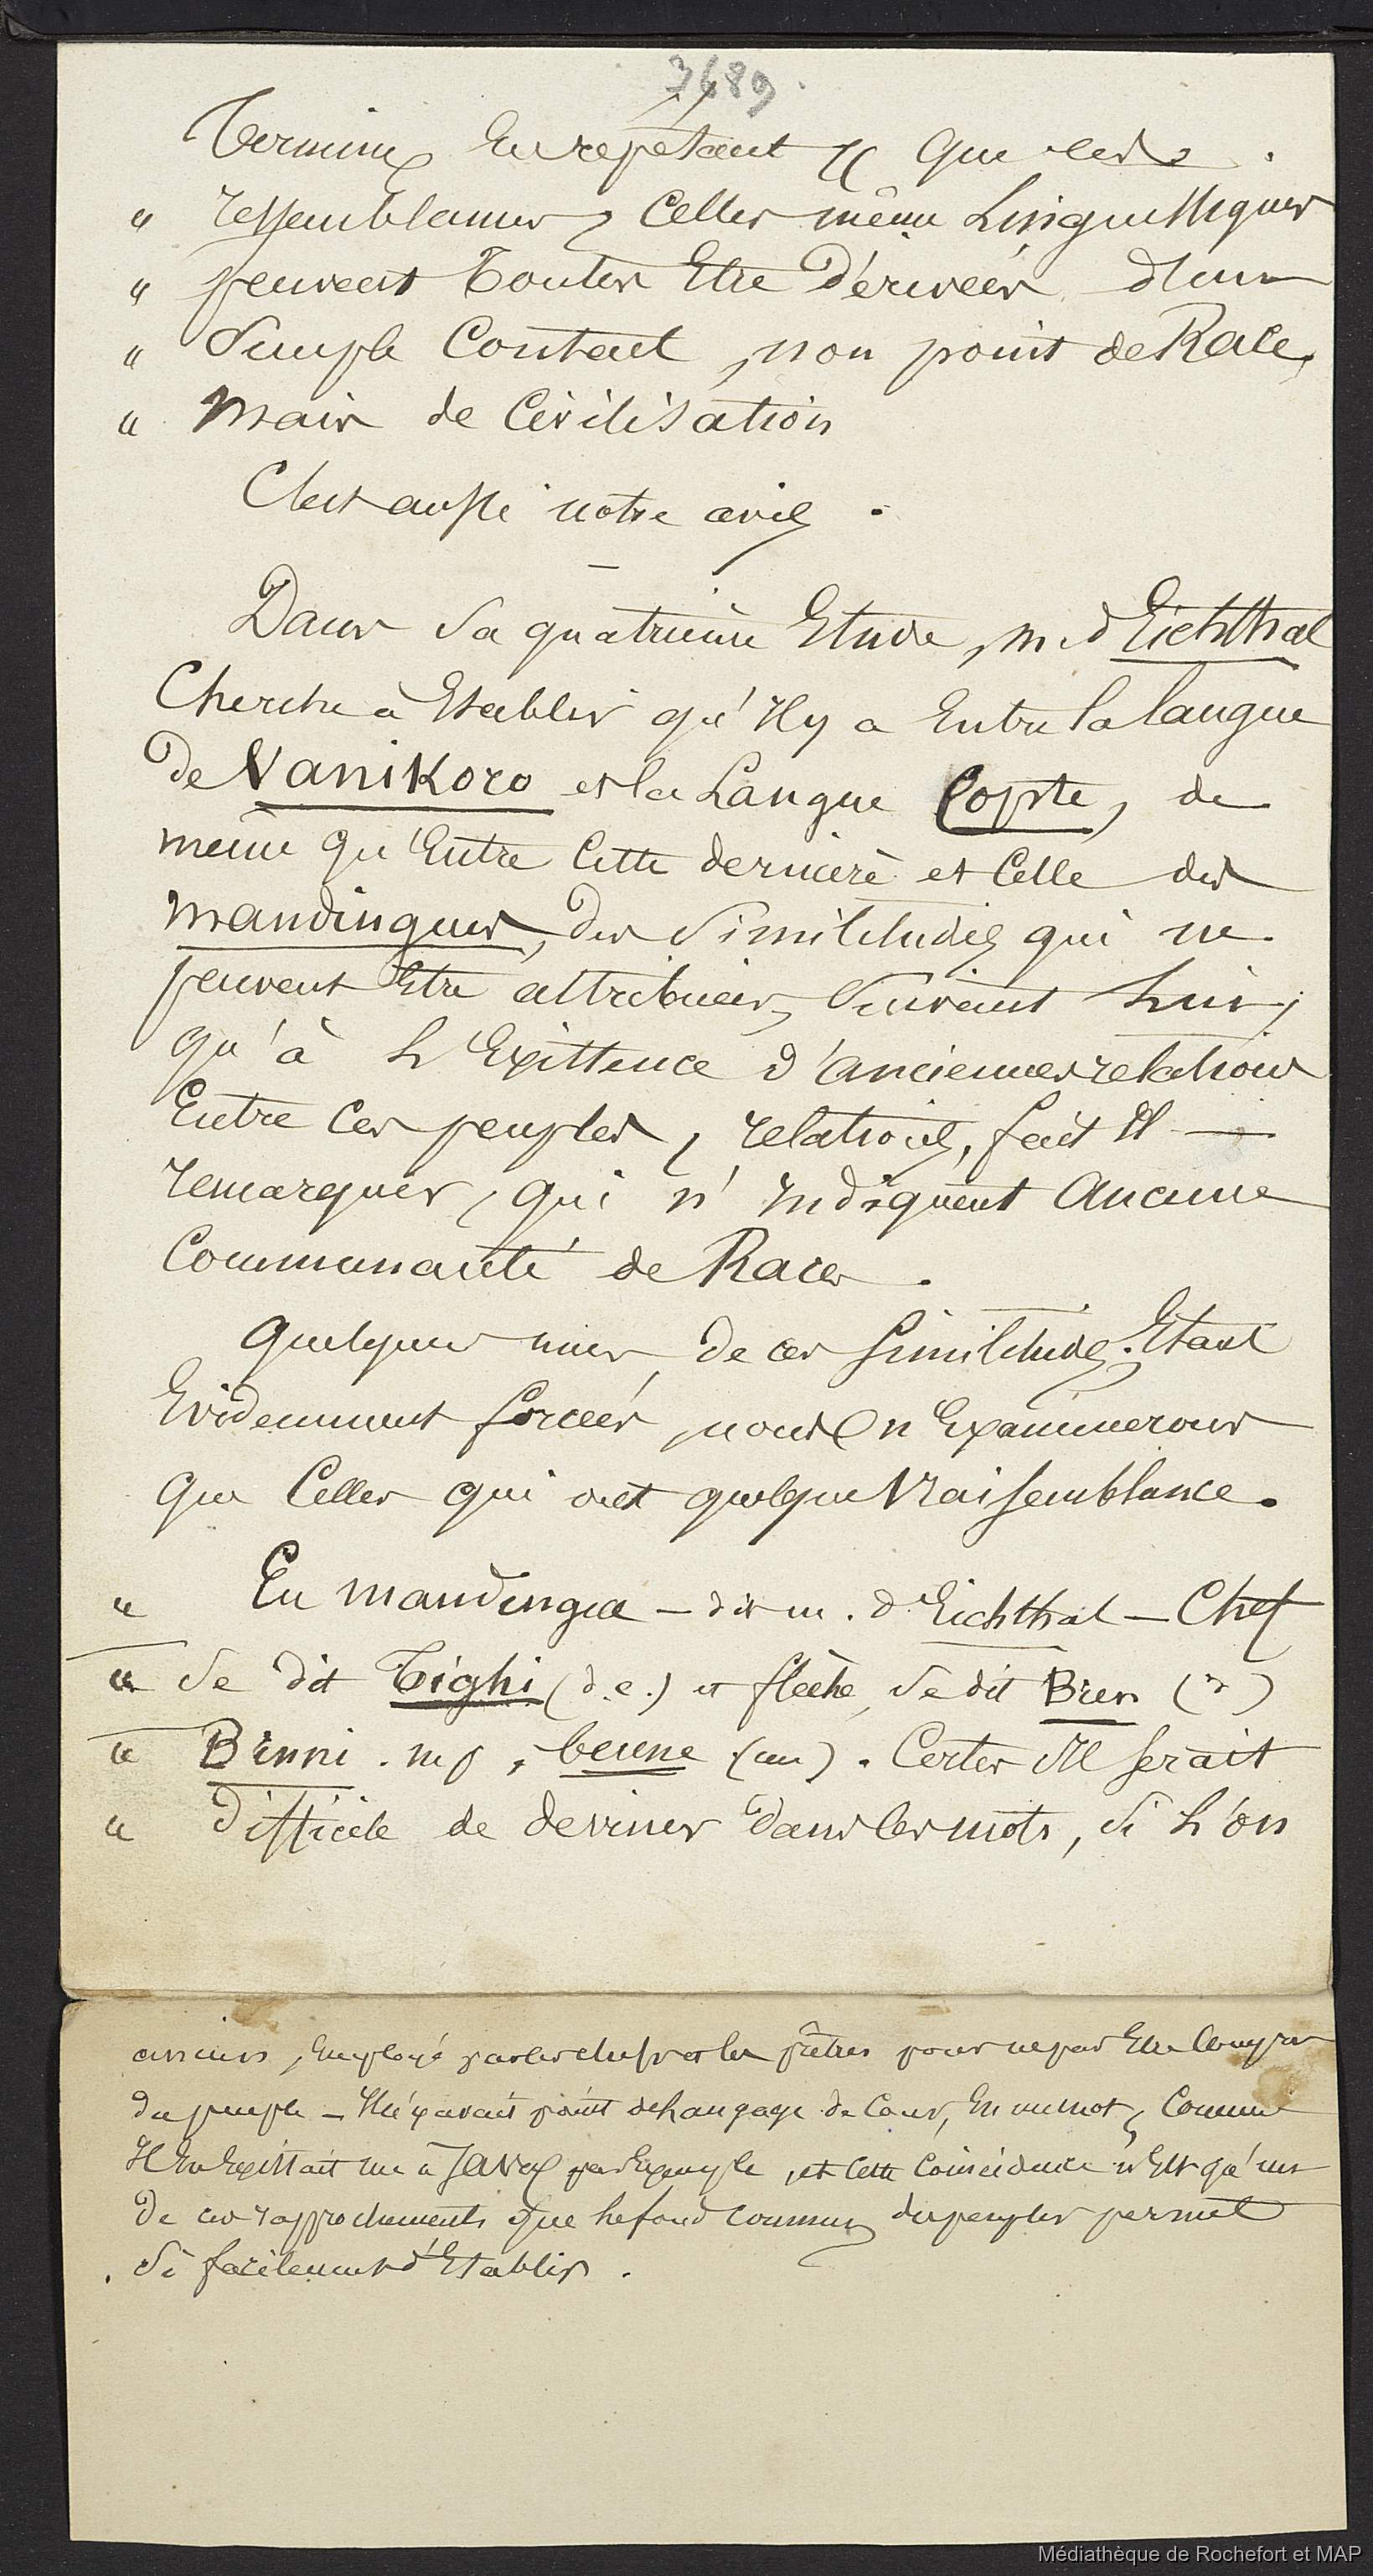 3689.
Termine En répétant « que les
" ressemblances, celles même Linguistiques
" peuvent Toutes Etre Dérivées d'un
" Simple Contact, non point de Race,
" mais de Civilisation
C'est aussi notre avis.
—
Dans Sa quatrième Etude, m. d'Eichthal
Cherche à Etablir qu'Il y a Entre la langue
De Vanikoro et la Langue Copte, de
même qu'Entre Cette dernière et Celle des
mandingues, Des Similitudes qui ne
peuvent Etre attribuées, Suivant Lui,
qu'à L'Existence d'anciennes relations
Entre Ces peuples, relations, fait Il —
remarquer, qui n'Indiquent Aucune
Communauté de Races.
Quelques unes de ces Similitudes Etant
Evidemment forcées, nous n'Examinerons
que Celles qui ont quelque Vraisemblance.
" En mandingue — dit m. d'Eichthal — Chef
" Se dit Tighi (d.e.) et flèche, Se dit Bien (d)
" Binni . m p, benne (cau). Certes Il serait
" Difficile de deviner Dans les mots, Si L'on
anciens, Employé par les chefs et les prêtres pour ne pas Etre Compris
du peuple — Il n'y avait point de Langage de Cour, En un mot, Comme
Il En Existait un à Java par Exemple, et Cette Coïncidence n'Est qu'un
De ces rapprochements que le fond commun des peuples permet
Si facilement d'Etablir.
Médiathèque de Rochefort et MAP